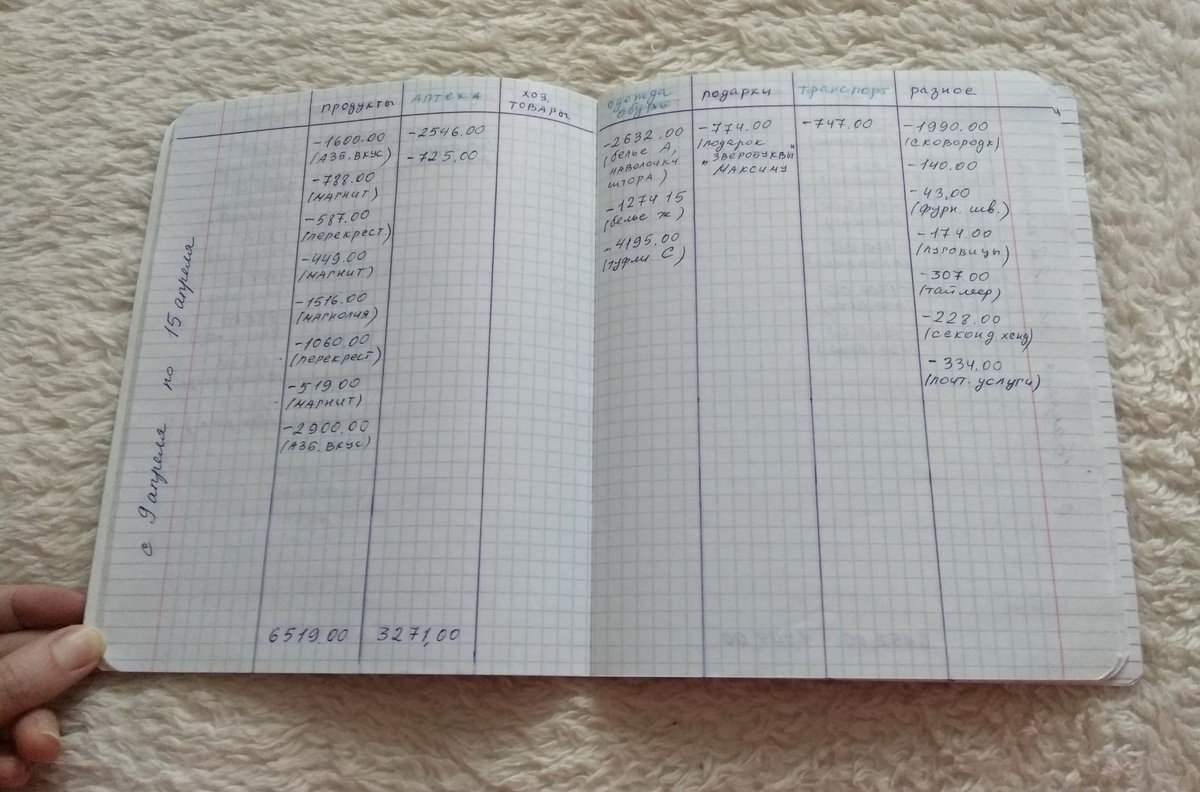 с 9 апреля по 15 апреля
продукты
-1600.00
(АЗБ. ВКУС)
-788.00
(МАГНИТ)
-587.00
(перекрест)
-449.00
(МАГНИТ)
-1516.00
(МАГНОЛИЯ)
-1060.00
(перекрест)
-519.00
(МАГНИТ)
-2900.00
(АЗБ. ВКУС)
6519.00
АПТЕКА
-2546.00
-725.00
3271,00
ХОЗ.
ТОВАРЫ
одежда
обувь
-2632.00
(белье А,
наволочки
штора)
-1274.15
(белье ж)
-4195.00
(туфли С)
подарки
-774.00
(подарок
"ЗВЕРОБУКВЫ"
МАКСИМУ
транспорт
-747.00
разное
-1990.00
(сковородк)
-140.00
-43.00
(фурн. шв.)
-174.00
(пуговицы)
-307.00
(таймер)
-228.00
(секонд хенд)
-334.00
(почт. услуги)